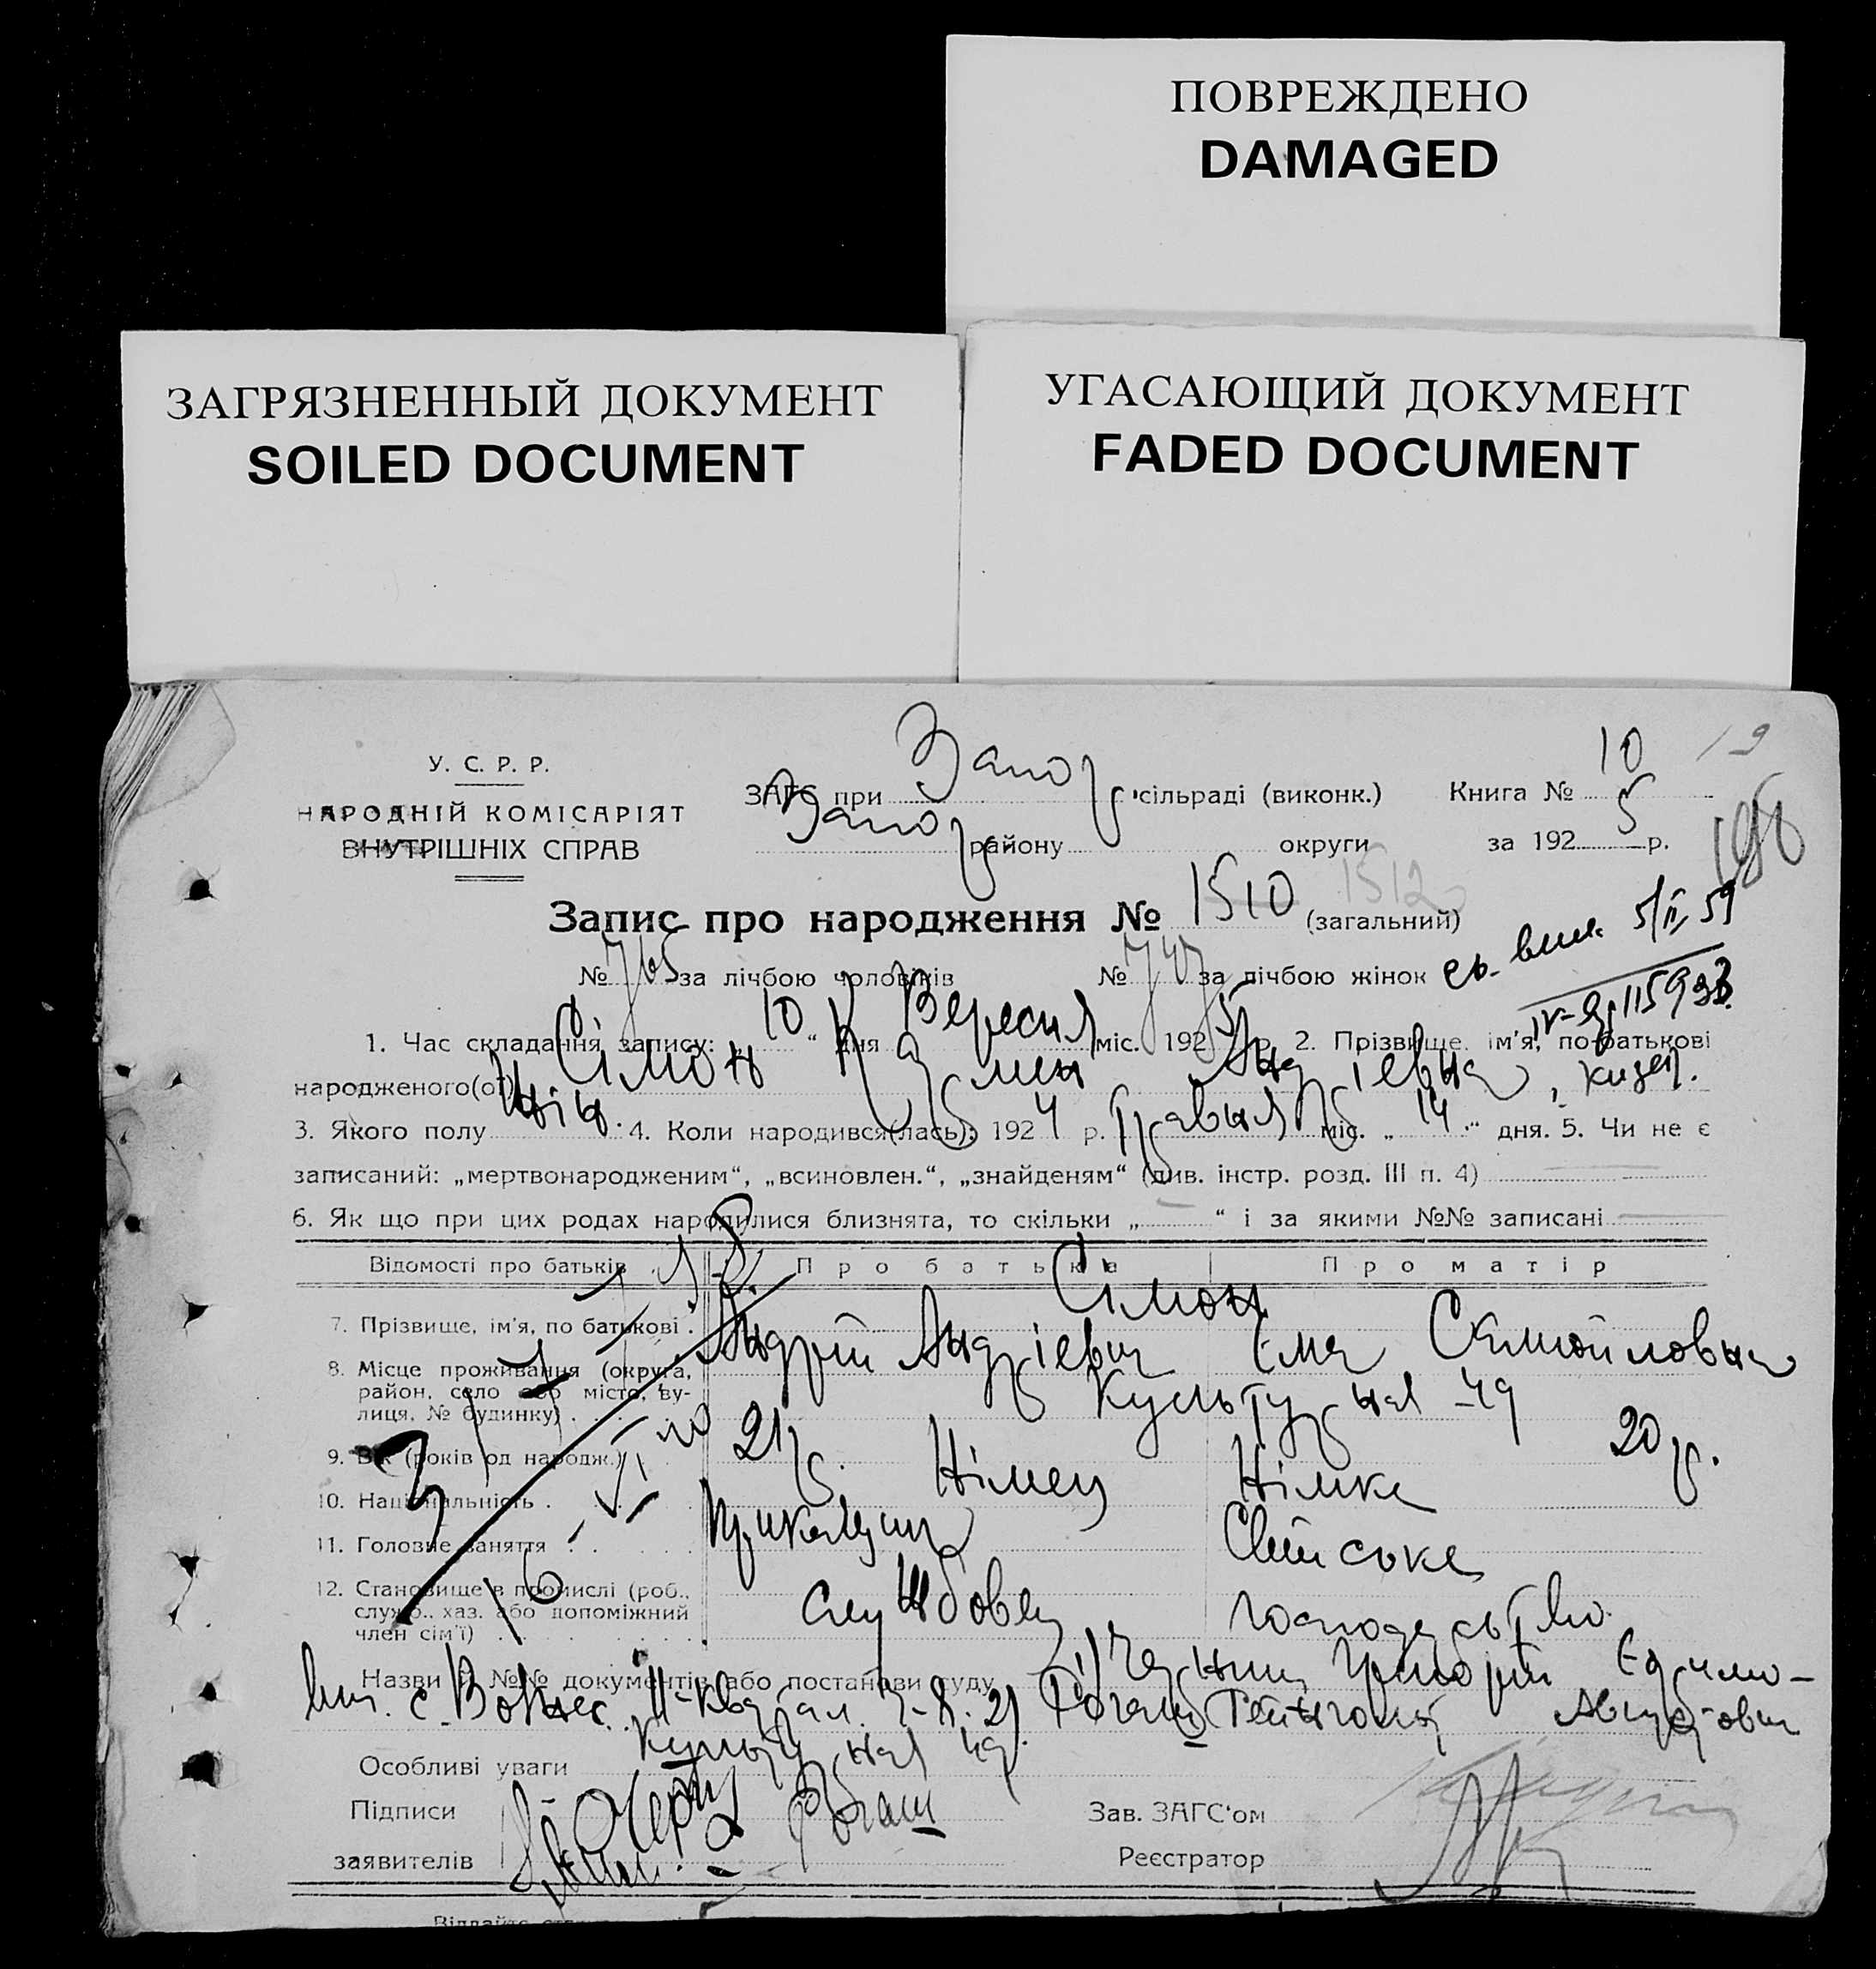 ПОВРЕЖДЕНО
DAMAGED
ЗАГРЯЗНЕННЫЙ ДОКУМЕНТ
SOILED DOCUMENT
УГАСАЮЩИЙ ДОКУМЕНТ
FADED DOCUMENT
У. С. Р. Р.
НАРОДНІЙ КОМІСАРІЯТ
ВНУТРІШНІХ СПРАВ
ЗАГС при Запор. сільраді (виконк.) Книга № 10
Запор району округи за 1925 р.
19
Запис про народження № 1510 (загальний) 1512
№ 765 за лічбою чоловіків № 747 за лічбою жінок
5/II 59
1. Час складання запису: „10“ дня Вересня міс. 1925 р. 2. Прізвище, ім'я, по-батькові
народженого(ої) Сімон Кармен Андрієвна
3. Якого полу жін. 4. Коли народився(лась): 1924 р. Травня міс. „14“ дня. 5. Чи не є
записаний: „мертвонародженим“, „всиновлен.“, „знайденям“ (див. інстр. розд. III п. 4)
6. Як що при цих родах народилися близнята, то скільки „ “ і за якими №№ записані
Відомості про батьків Про батька Про матір
7. Прізвище, ім'я, по батькові . Сімон
Андрій Андрієвич Ема Самойловна
8. Місце проживання (округа, район, село або місто, вулиця, № будинку) . Культурная -49
9. Вік (років од народж.) 21 р. 20 р.
10. Національність . Німец Німка
11. Головне заняття . Прикащик Сімейське
12. Становище в промислі (роб., служб., хаз. або допоміжний член сім'ї) Службовец господарство
Назви й №№ документів або постанови суду 1)
2)
Особливі уваги Культурная 49.
Підписи
заявителів
Зав. ЗАГС'ом
Реєстратор